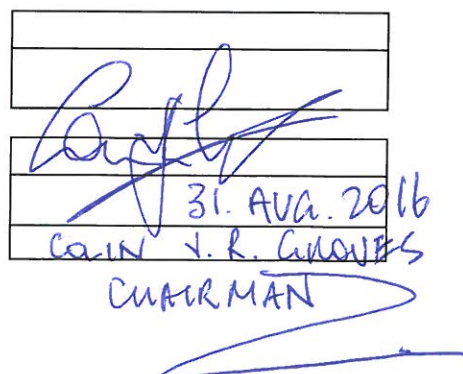 31. AUG. 2016
COLIN J. R. GROVES
CHAIRMAN